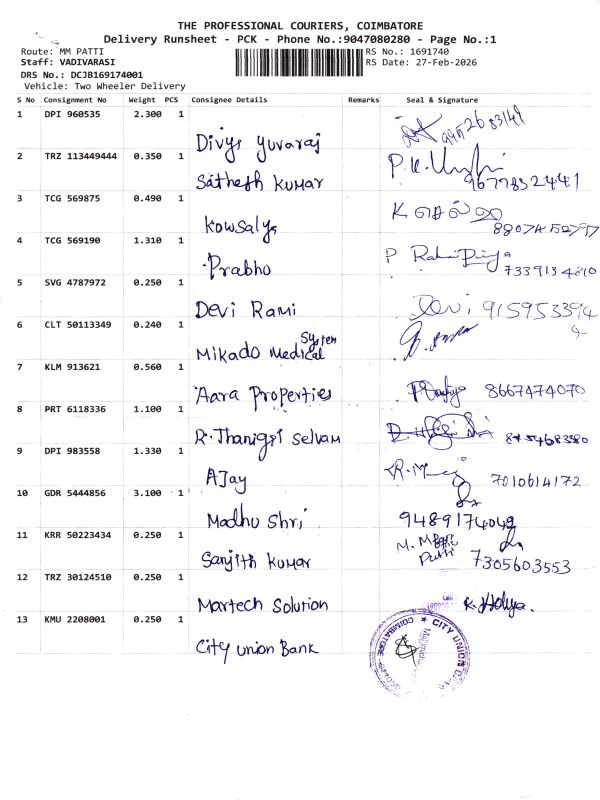 THE PROFESSIONAL COURIERS, COIMBATORE
Delivery Runsheet - PCK - Phone No.:9047080280 - Page No.:1
Route: MM PATTI RS No.: 1691740
Staff: VADIVARASI RS Date: 27-Feb-2026
DRS No.: DCJB169174001
Vehicle: Two Wheeler Delivery
S No Consignment No Weight PCS Consignee Details Remarks Seal & Signature
1 DPI 960535 2.300 1
Divya Yuvaraj
2 TRZ 113449444 0.350 1
Sathesh Kumar 9677832441
3 TCG 569875 0.490 1
Kowsalya
4 TCG 569190 1.310 1
Prabho 7339134810
5 SVG 4787972 0.250 1
Devi Rami Devi 915953394
6 CLT 50113349 0.240 1
Mikado Medical System
7 KLM 913621 0.560 1
Aara Properties 8667474070
8 PRT 6118336 1.100 1
R. Thanigai Selvam
9 DPI 983558 1.330 1
AJay 7010614172
10 GDR 5444856 3.100 1
Madhu Shri 9489174049
11 KRR 50223434 0.250 1
Sanjith Kumar 7305603553
12 TRZ 30124510 0.250 1
Martech Solution
13 KMU 2208001 0.250 1
City Union Bank
CITY UNION
COIMBATORE